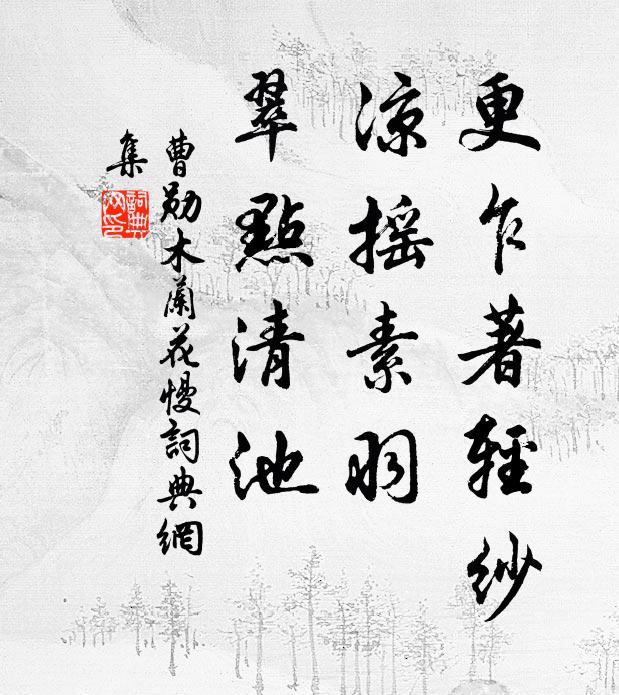 更乍著輕紗
凉搖素羽
翠點清池
曹勛木蘭花慢詞典網
集
詞典
网印